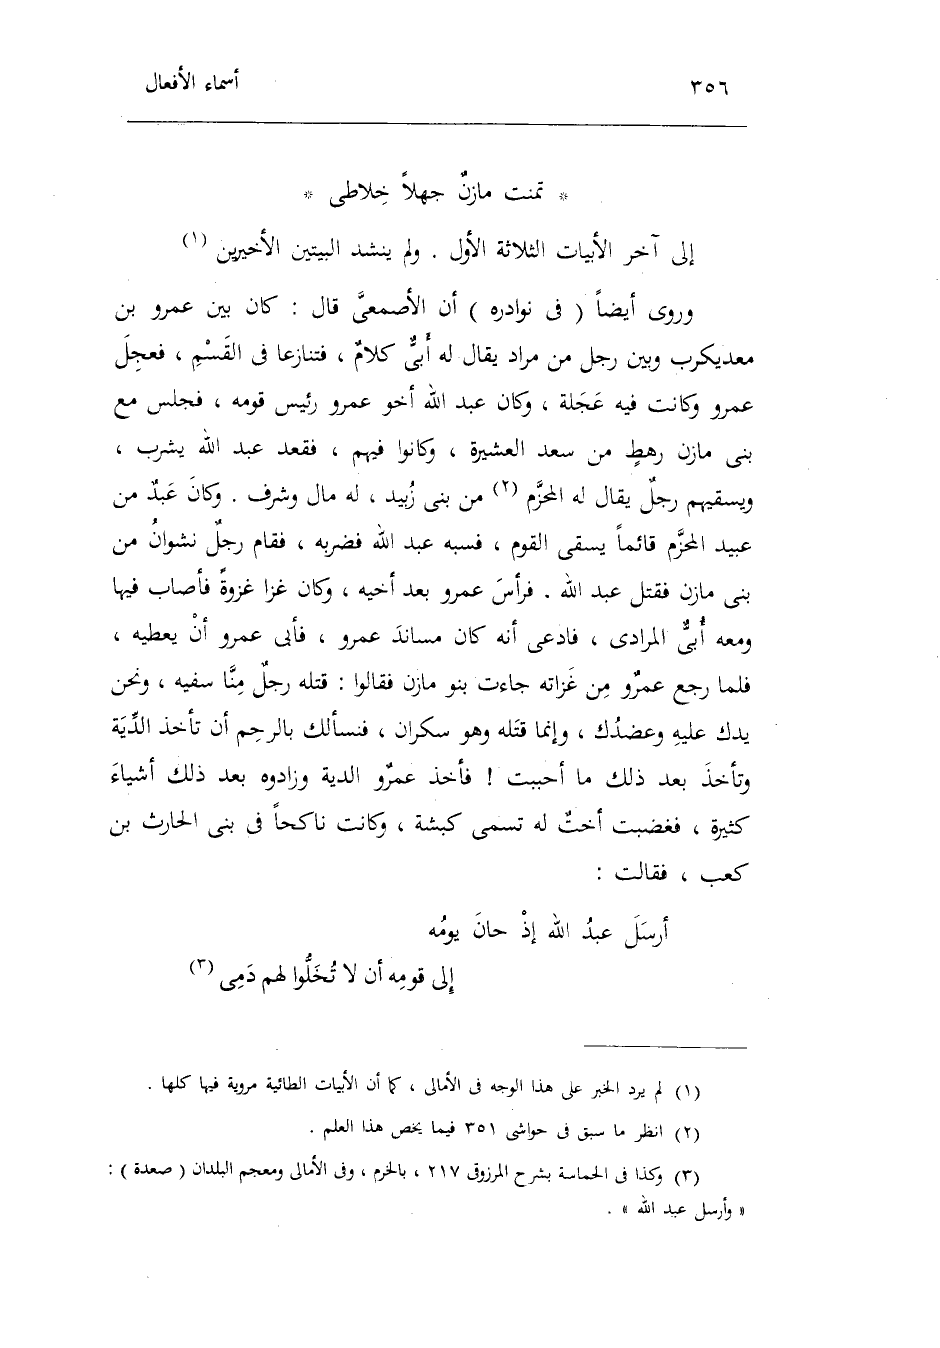 ٣٥٦ أسماء الأفعال
* تمنت مازنٌ جهلاً خِلاطى *
إلى آخر الأبيات الثلاثة الأول . ولم ينشد البيتين الأخيرين (١)
وروى أيضاً ( فى نوادره ) أن الأصمعىَّ قال : كان بين عمرو بن
معديكرب وبين رجل من مراد يقال له أُبىٌّ كلامٌ ، فتنازعا فى القَسْمِ ، فعجِلَ
عمرو وكانت فيه عَجَلة ، وكان عبد الله أخو عمرو رئيس قومه ، فجلس مع
بنى مازن رهطٍ من سعد العشيرة ، وكانوا فيهم ، فقعد عبد الله يشرب ،
ويسقيهم رجلٌ يقال له المخزَّم (٢) من بنى زُبيد ، له مال وشرف . وكانَ عَبدٌ من
عبيد المخزَّم قائماً يسقى القوم ، فسبه عبد الله فضربه ، فقام رجلٌ نشوانُ من
بنى مازن فقتل عبد الله . فرأسَ عمرو بعد أخيه ، وكان غزا غزوةً فأصاب فيها
ومعه أُبىٌّ المرادى ، فادعى أنه كان مساندَ عمرو ، فأبى عمرو أنْ يعطيه ،
فلما رجع عمرٌو مِن غَزاته جاءت بنو مازن فقالوا : قتله رجلٌ مِنَّا سفيه ، ونحن
يدك عليهِ وعضدُك ، وإنما قتَله وهو سكران ، فنسألك بالرحِم أن تأخذ الدِّيَة
وتأخذَ بعد ذلك ما أحببت ! فأخذ عمرٌو الدية وزادوه بعد ذلك أشياءَ
كثيرة ، فغضبت أختٌ له تسمى كبشة ، وكانت ناكحاً فى بنى الحارث بن
كعب ، فقالت :
أرسَلَ عبدُ الله إذْ حانَ يومُه
إلى قومِه أن لا تُخَلُّوا لهم دَمِى (٣)
(١) لم يرد الخبر على هذا الوجه فى الأمالى ، كما أن الأبيات الطائية مروية فيها كلها .
(٢) انظر ما سبق فى حواشى ٣٥١ فيما يخص هذا العلم .
(٣) وكذا فى الحماسة بشرح المرزوقى ٢١٧ ، بالخرم ، وفى الأمالى ومعجم البلدان ( صعدة ) :
« وأرسل عبد الله » .